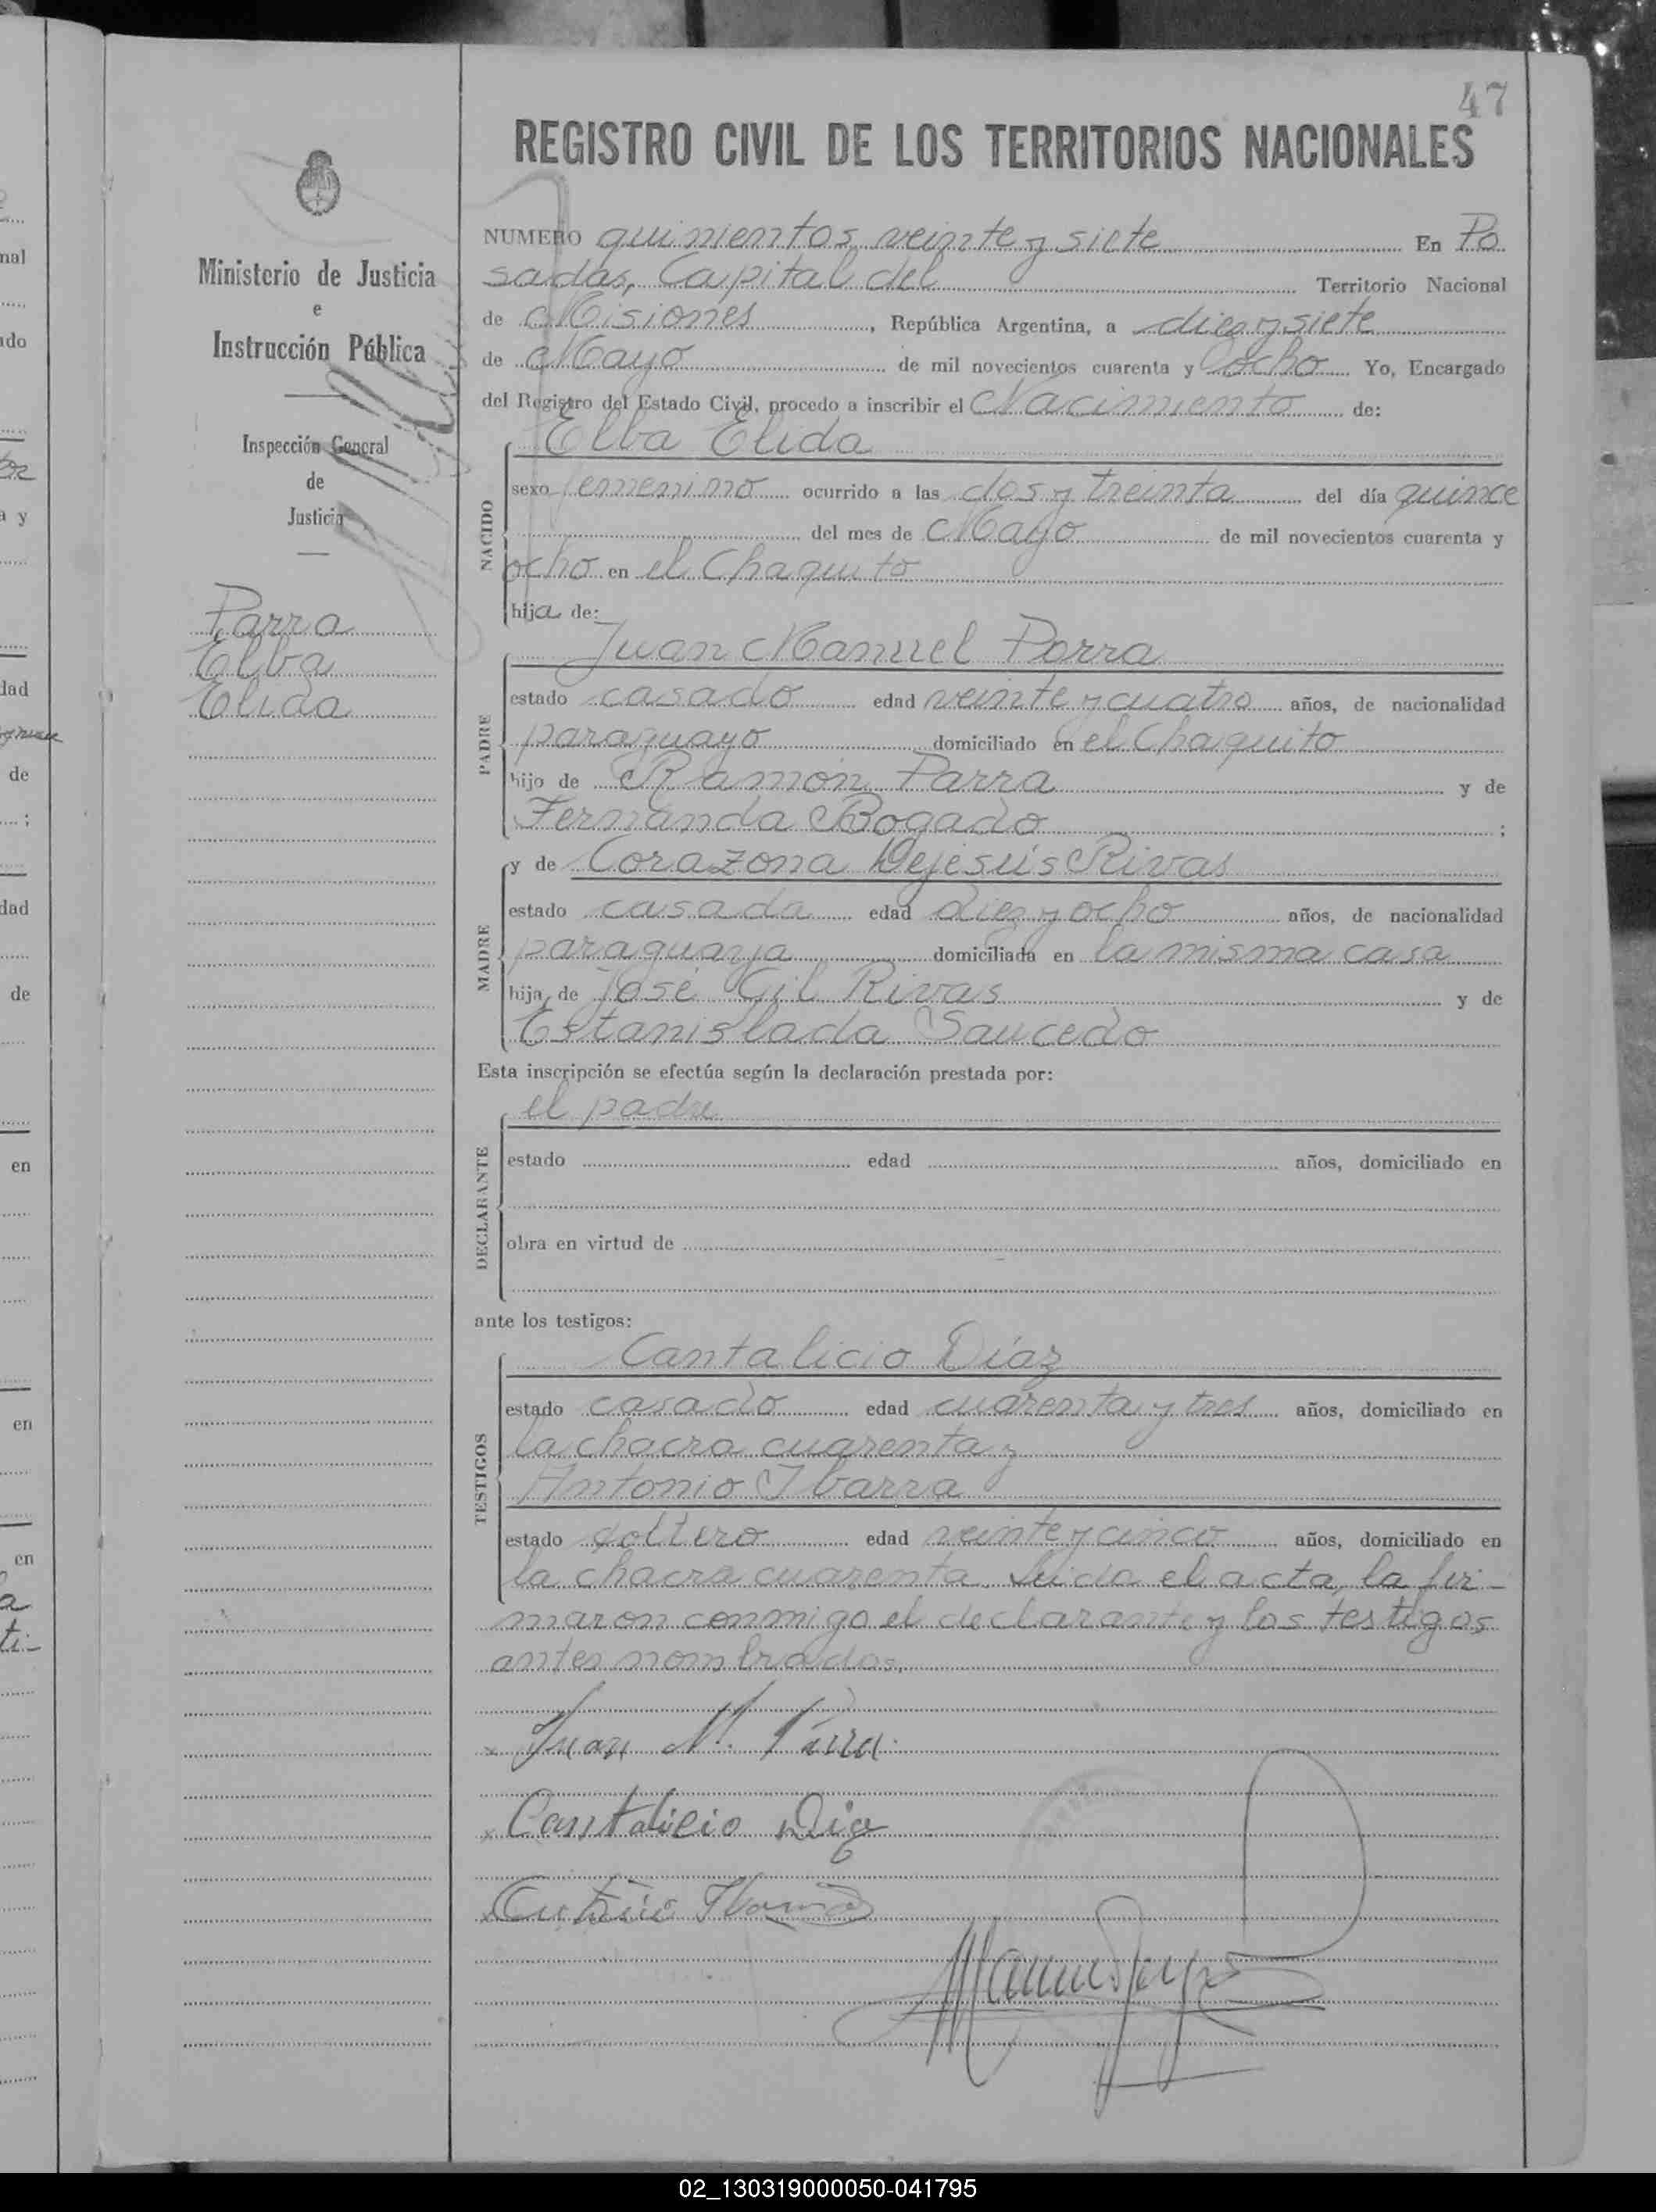 47
REGISTRO CIVIL DE LOS TERRITORIOS NACIONALES
Ministerio de Justicia
e
Instrucción Pública
Inspección General
de
Justicia
Parra
Elba
Elida
NUMERO quinientos veinte y siete En Po
sadas, Capital del Territorio Nacional
de Misiones, República Argentina, a diez y siete
de Mayo de mil novecientos cuarenta y ocho Yo, Encargado
del Registro del Estado Civil, procedo a inscribir el Nacimiento de:
Elba Elida
NACIDO
sexo femenino ocurrido a las dos y treinta del día quince
del mes de Mayo de mil novecientos cuarenta y
ocho en el Chaquito
hija de:
Juan Manuel Parra
PADRE
estado casado edad veinte y cuatro años, de nacionalidad
paraguayo domiciliado en el Chaquito
hijo de Ramón Parra y de
Fernanda Bogado ;
y de Corazona Dejesús Rivas
MADRE
estado casada edad diez y ocho años, de nacionalidad
paraguaya domiciliada en la misma casa
hija de José Gil Rivas y de
Estanislada Saucedo
Esta inscripción se efectúa según la declaración prestada por:
el padre
DECLARANTE
estado edad años, domiciliado en
obra en virtud de
ante los testigos:
Cantalicio Díaz
TESTIGOS
estado casado edad cuarenta y tres años, domiciliado en
la chacra cuarenta y
Antonio Ibarra
estado soltero edad veinte y cinco años, domiciliado en
la chacra cuarenta. Leida el acta, la fir-
maron conmigo el declarante y los testigos
antes nombrados.
x Juan M. Parra
x Cantalicio Diaz
02_130319000050-041795